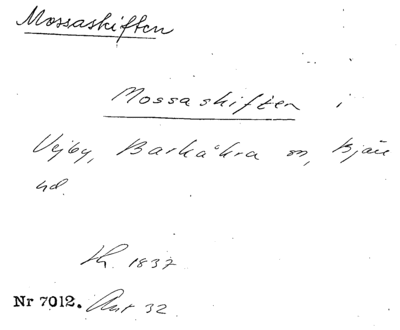 Mossaskiften
Mossaskiften i
Vejby, Barkåkra sn, Bjäre
hd.
Lh. 1837
Nr 7012. Akt 32